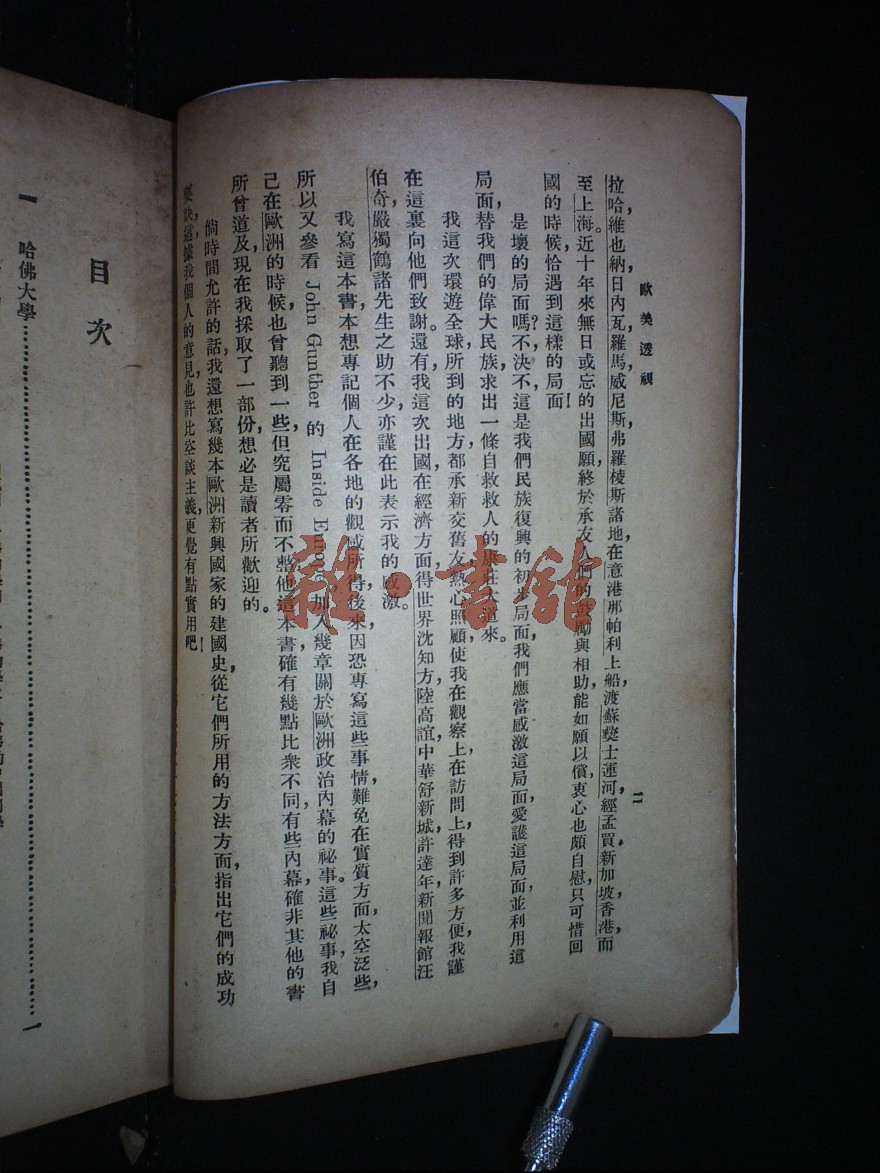 歐美透視
二
拉哈,維也納,日內瓦,羅馬,威尼斯,弗羅棱斯諸地,在意港那帕利上船,渡蘇彝士運河,經孟買,新加坡,香港,而
至上海。近十年來無日或忘的出國願,終於承友人們的鼓勵與相助,能如願以償,衷心也頗自慰,只可惜回
國的時候,恰遇到這樣的局面!
是壞的局面嗎?不,決不,這是我們民族復興的初步局面,我們應當感激這局面,愛護這局面,並利用這
局面,替我們的偉大民族,求出一條自救救人的康莊大道來。
我這次環遊全球,所到的地方,都承新交舊友,熱心照顧,使我在觀察上,在訪問上,得到許多方便,我謹
在這裏向他們致謝。還有,我這次出國,在經濟方面,得世界沈知方,陸高誼,中華舒新城,許達年,新聞報館汪
伯奇,嚴獨鶴諸先生之助不少,亦謹在此表示我的感激。
我寫這本書,本想專記個人在各地的觀感所得,後來因恐專寫這些事情,難免在實質方面,太空泛些,
所以又參看 John Gunther 的 Inside Europe,加入幾章關於歐洲政治內幕的祕事。這些祕事,我自
己在歐洲的時候,也曾聽到一些,但究屬零而不整,他這本書,確有幾點比衆不同,有些內幕,確非其他的書
所曾道及,現在我採取了一部份,想必是讀者所歡迎的。
倘時間允許的話,我還想寫幾本歐洲新興國家的建國史,從它們所用的方法方面,指出它們的成功
要訣,這據我個人的意見,也許比空談主義,更覺有點實用吧!
目次
一 哈佛大學……一
雜·書館